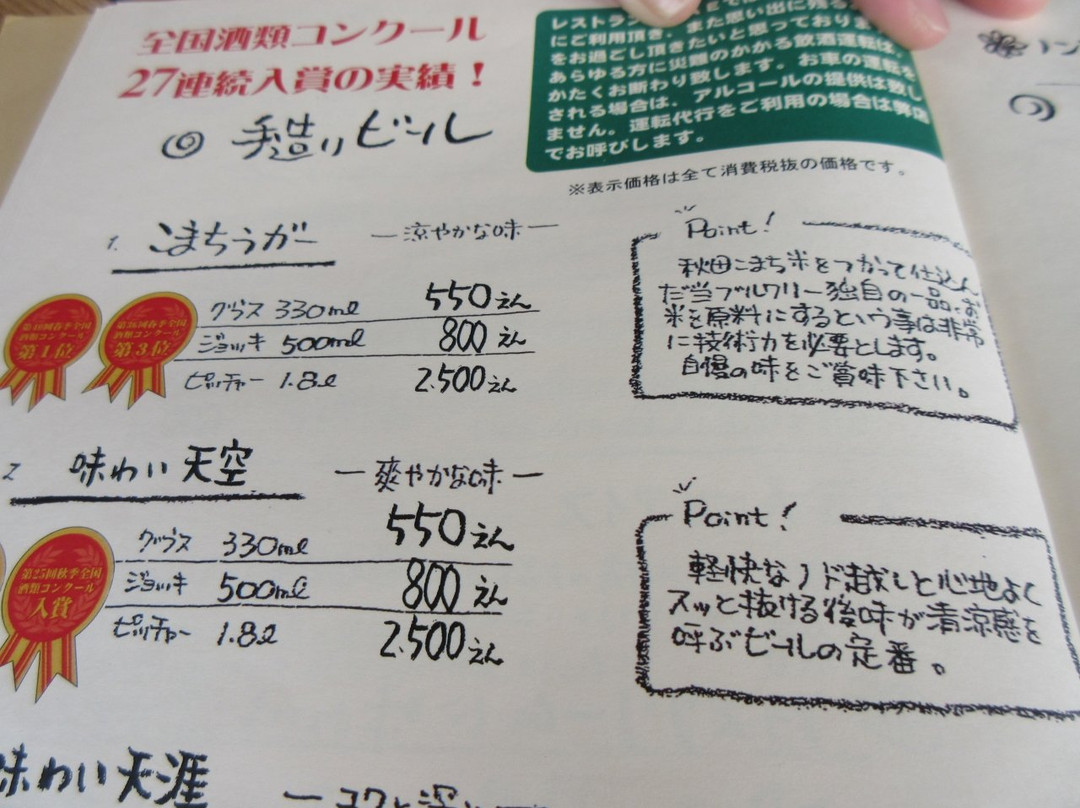 全国酒類コンクール
27連続入賞の実績！
◎ 手造りビール
レストラン
にご利用頂き、また思い出に残る
をお過ごし頂きたいと思っております
あらゆる方に災難のかかる飲酒運転は、
かたくお断わり致します。お車の運転を
される場合は、アルコールの提供は致し
ません。運転代行をご利用の場合は弊店
でお呼びします。
※表示価格は全て消費税抜の価格です。
1. こまちラガー ー涼やかな味ー
第1位
酒類コンクール
第3位
グラス 330ml 550えん
ジョッキ 500ml 800えん
ピッチャー 1.8ℓ 2.500えん
Point!
秋田こまち米をつかって仕込ん
だ当ブルワリー独自の一品。お
米を原料にするという事は非常
に技術力を必要とします。
自慢の味をご賞味下さい。
2 味わい天空 ー爽やかな味ー
第25回秋季全国
酒類コンクール
入賞
グラス 330ml 550えん
ジョッキ 500ml 800えん
ピッチャー 1.8ℓ 2.500えん
Point!
軽快なノド越しと心地よく
スッと抜ける後味が清涼感を
呼ぶビールの定番。
味わい天涯
ーコクと深